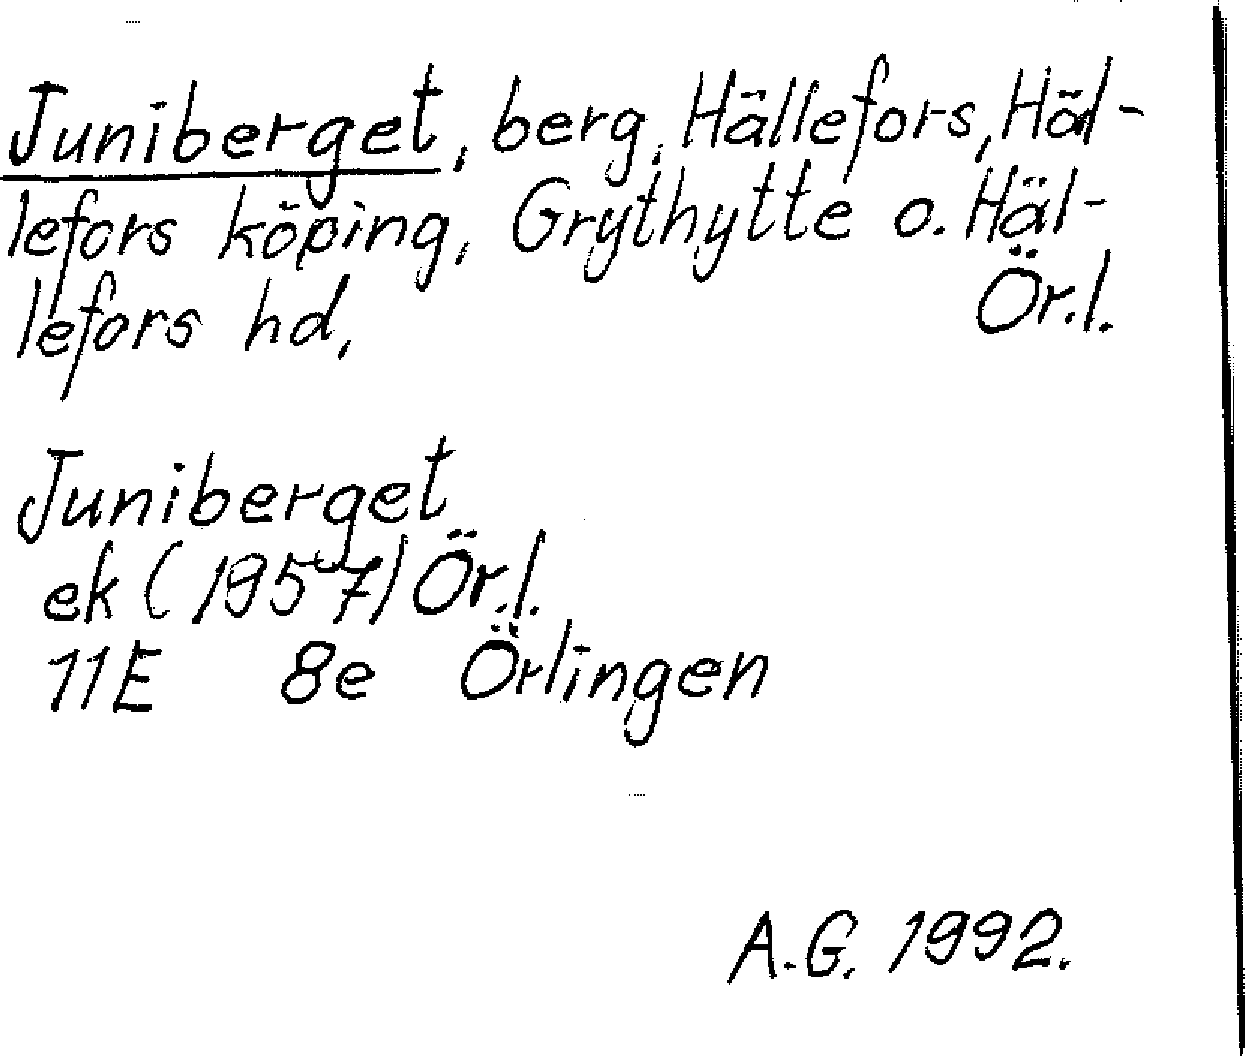 Juniberget, berg, Hällefors, Häl-
lefors köping, Grythytte o. Häl-
lefors hd,
Ör.l.
Juniberget
ek (1957) Ör.l.
11E 8e Örlingen
A.G. 1992.